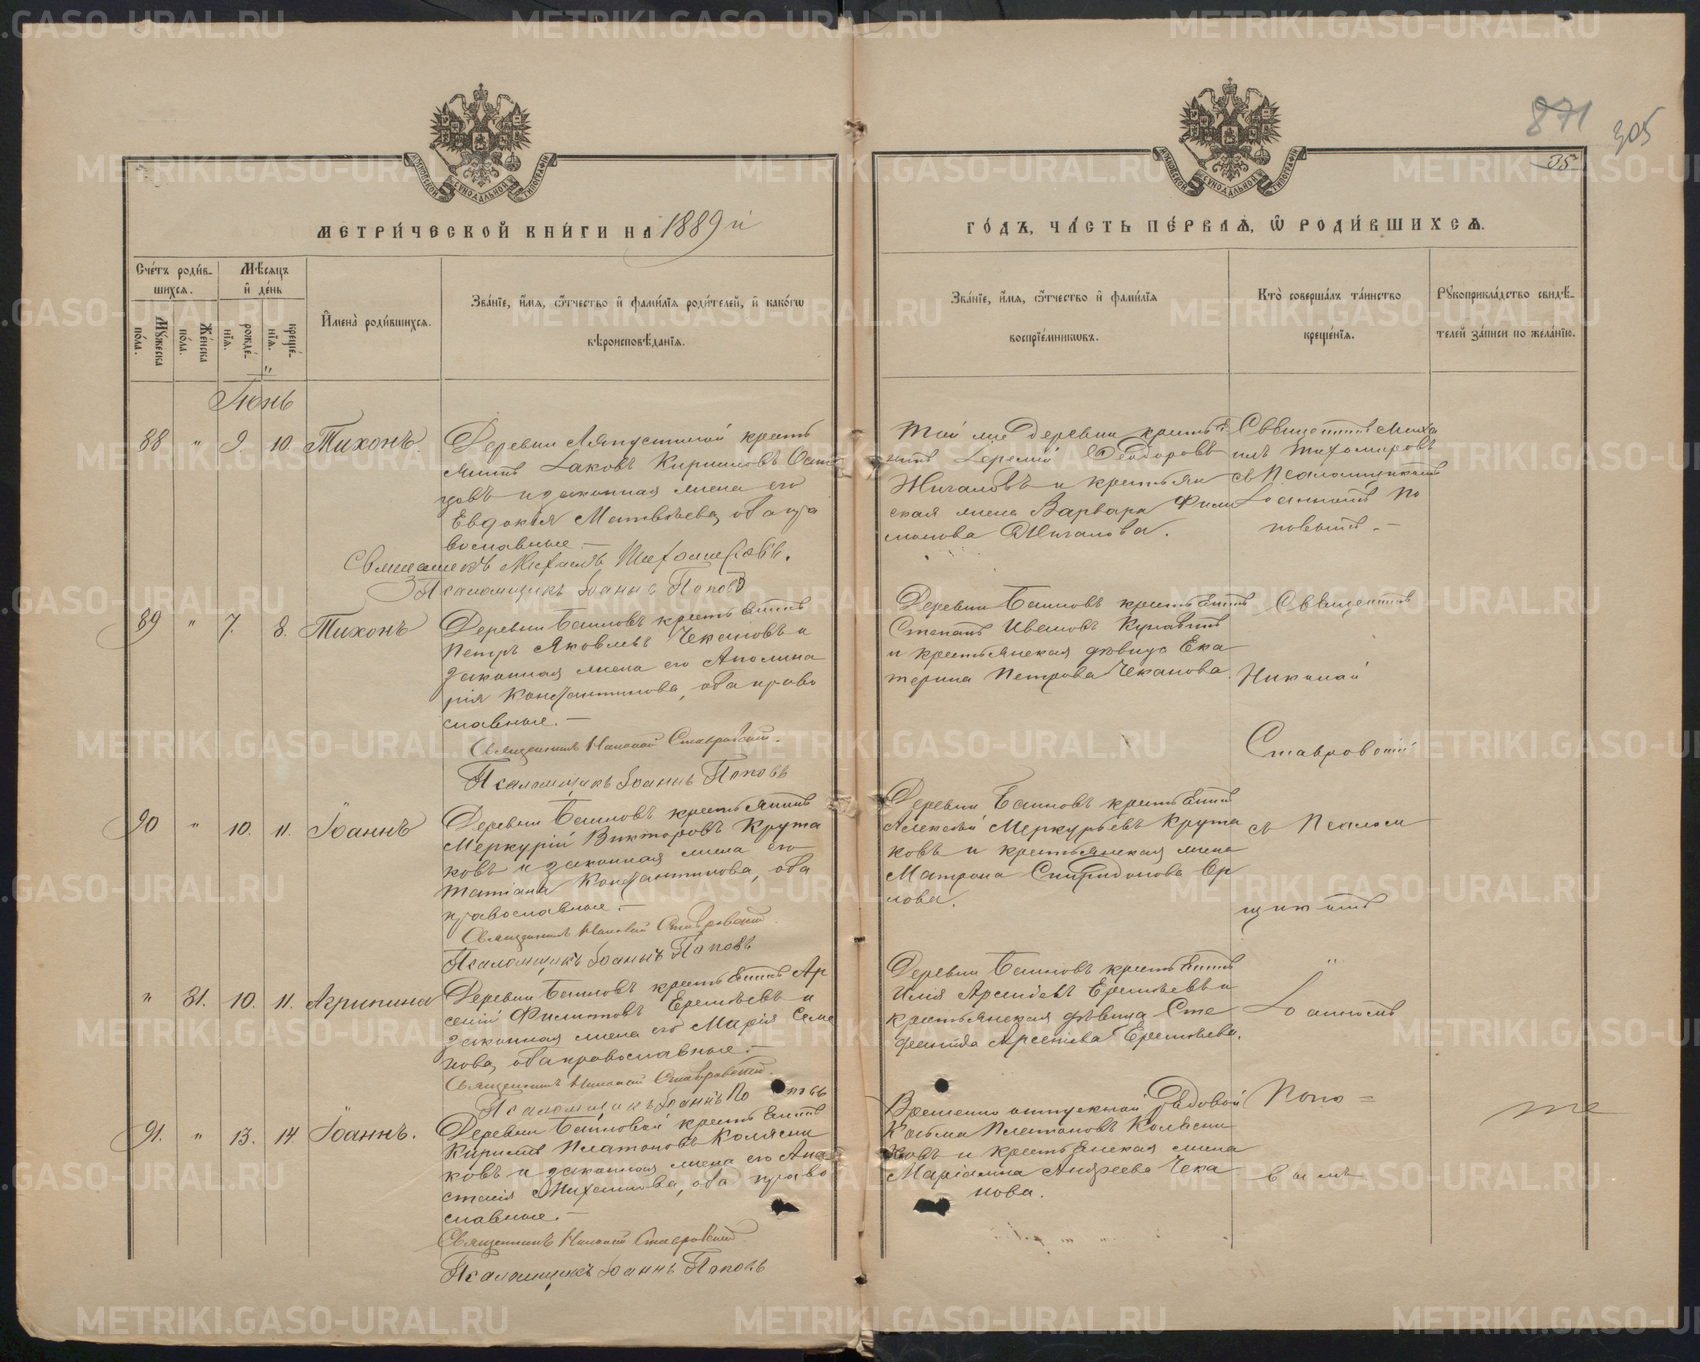 871
305
35
МЕТРИ́ЧЕСКОЙ КНИ́ГИ НА 1889 й
ГО́ДЪ, ЧА́СТЬ ПЕ́РВАѦ, Ѿ РОДИ́ВШИХСѦ.
Сче́тъ роди́в-
шихсѧ.
Мѣ́сѧцъ
и҆ де́нь
Мꙋ́жеска
по́ла.
Же́нска
по́ла.
рожде́-
нїѧ.
креще́-
нїѧ.
И҆мена̀ роди́вшихсѧ.
Зва́нїе, и҆́мѧ, ѻ҆́тчество и҆ фами́лїѧ роди́телей, и҆ како́гѡ
вѣроисповѣ́данїѧ.
Зва́нїе, и҆́мѧ, ѻ҆́тчество и҆ фами́лїѧ
воспрїе́мникѡвъ.
Кто̀ соверша́лъ та́инство
креще́нїѧ.
Рꙋкоприкла́дство свидѣ́-
телей за́писи по жела́нїю.
Іюнь
88 " 9. 10. Тихонъ.
Деревни Ляпустиной кресть
янинъ Іаковъ Кирилловъ
и законная жена его
Евдокія Матвѣева, оба пра
вославные.—
Священникъ Михаилъ Тихомировъ.
Псаломщикъ Іоаннъ Поповъ
Той же деревни крестья
нинъ Іеремій Ѳеодоровъ
Жигаловъ и крестьян
ская жена Варвара Фили
монова Жигалова.
Священникъ Миха
илъ Тихомировъ
съ Псаломщикомъ
Іоанномъ По
повымъ.—
89 " 7. 8. Тихонъ
Деревни Баиновъ крестьянинъ
Петръ Яковлевъ Чекановъ и
законная жена его Аполина
рія Константинова, оба право
славные.—
Священникъ Николай Ставровскій.
Псаломщикъ Іоаннъ Поповъ
Деревни Баиновъ крестьянинъ
Степанъ Ивановъ
и крестьянская дѣвица Ека
терина Петрова Чеканова.
Священникъ
Николай
Ставровскій
90 " 10. 11. Іоаннъ
Деревни Баиновъ крестьянинъ
Меркурій Викторовъ Крута
ковъ и законная жена его
Татіана Константинова, оба
православные.—
Священникъ Николай Ставровскій.
Псаломщикъ Іоаннъ Поповъ
Деревни Баиновъ крестьянинъ
Алексѣй Меркурьевъ Крута
ковъ и крестьянская жена
Матрона Спиридонова Ор
лова.
съ Псалом
щикомъ
" 31. 10. 11. Агрипина
Деревни Баиновъ крестьянинъ Ар
сеній Филиповъ Еремѣевъ и
законная жена его Марія Семе
нова, оба православные.—
Священникъ Николай Ставровскій.
Псаломщикъ Іоаннъ Поповъ
Деревни Баиновъ крестьянинъ
Илія Арсеніевъ Еремѣевъ и
крестьянская дѣвица Сте
фанида Арсеніева Еремѣева.
Іоанномъ
91. " 13. 14 Іоаннъ.
Деревни Баиновой крестьянинъ
Кирилъ Платоновъ Колясни
ковъ и законная жена его Ана
стасія Михаилова, оба право
славные.—
Священникъ Николай Ставровскій.
Псаломщикъ Іоаннъ Поповъ
Временно отпускной рядовой
Косьма Платоновъ Колясни
ковъ и крестьянская жена
Маріамна Андреева Чека
нова.
Попо=
вымъ